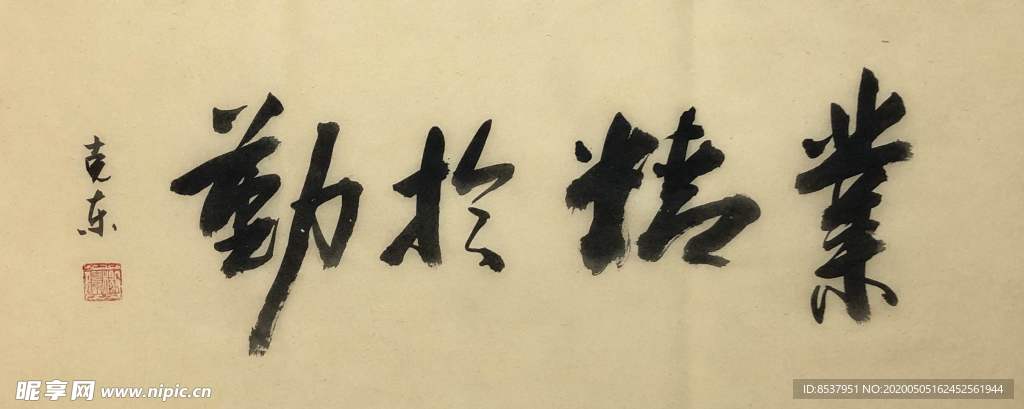 業精於勤
克东
昵享网 www.nipic.cn
ID:8537951 NO:20200505162452561944